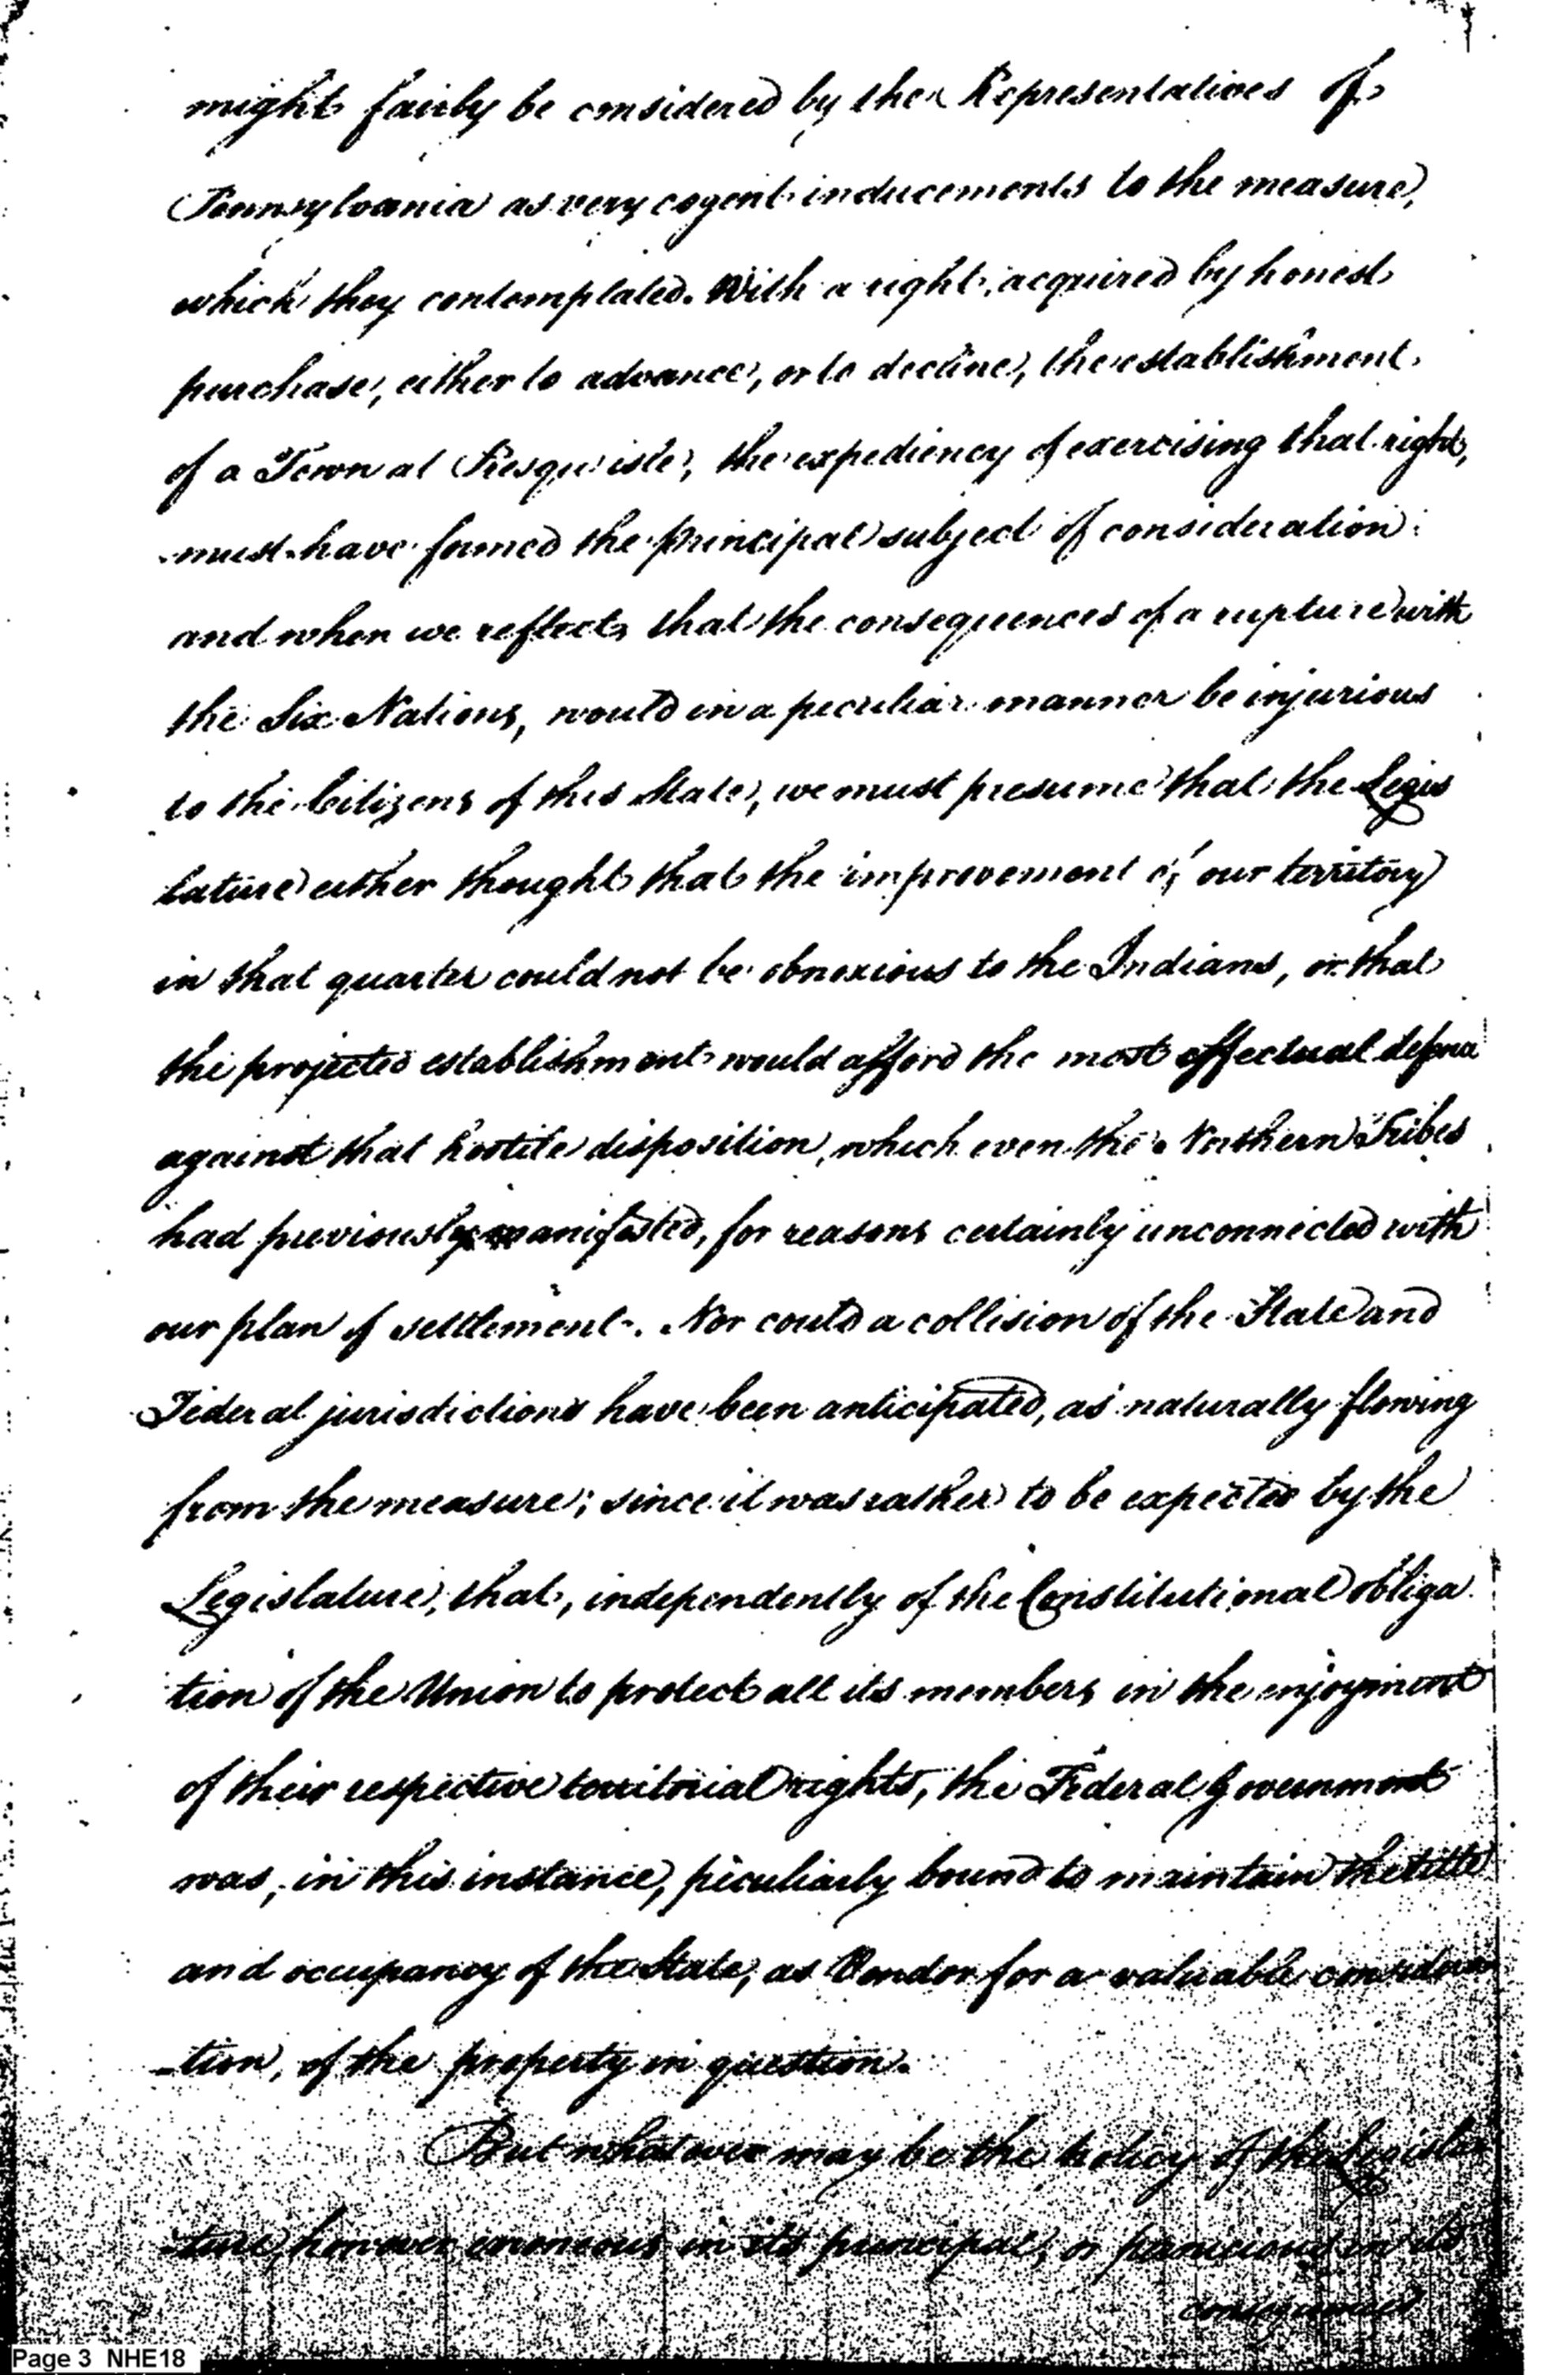 might fairly be considered by the Representatives of
Pennsylvania as very cogent inducements to the measure,
which they contemplated. With a right, acquired by honest
purchase, either to advance, or to decline, the establishment
of a Town at Presqu'isle, the expediency of exercising that right,
must have formed the principal subject of consideration:
and when we reflect, that the consequences of a rupture with
the Six Nations, would in a peculiar manner be injurious
to the Citizens of this State, we must presume that the Legis
lature either thought that the improvement of our territory
in that quarter could not be obnoxious to the Indians, or that
the projected establishment would afford the most effectual
against that hostile disposition, which even the Northern Tribes
had previously manifested, for reasons certainly unconnected with
our plan of settlement. Nor could a collision of the State and
Federal jurisdictions have been anticipated, as naturally flowing
from the measure; since it was rather to be expected by the
Legislature, that, independently of the Constitutional obliga
tion of the Union to protect all its members in the enjoyment
of their respective territorial rights, the Federal Government
was, in this instance, peculiarly bound to maintain the title
and occupancy of the State, as Vendor for a valuable considera
-tion, of the property in question.
But whatever may be the policy of the Legisla
-ture, however erroneous in its principal, or pernicious in its
consequences
Page 3 NHE18